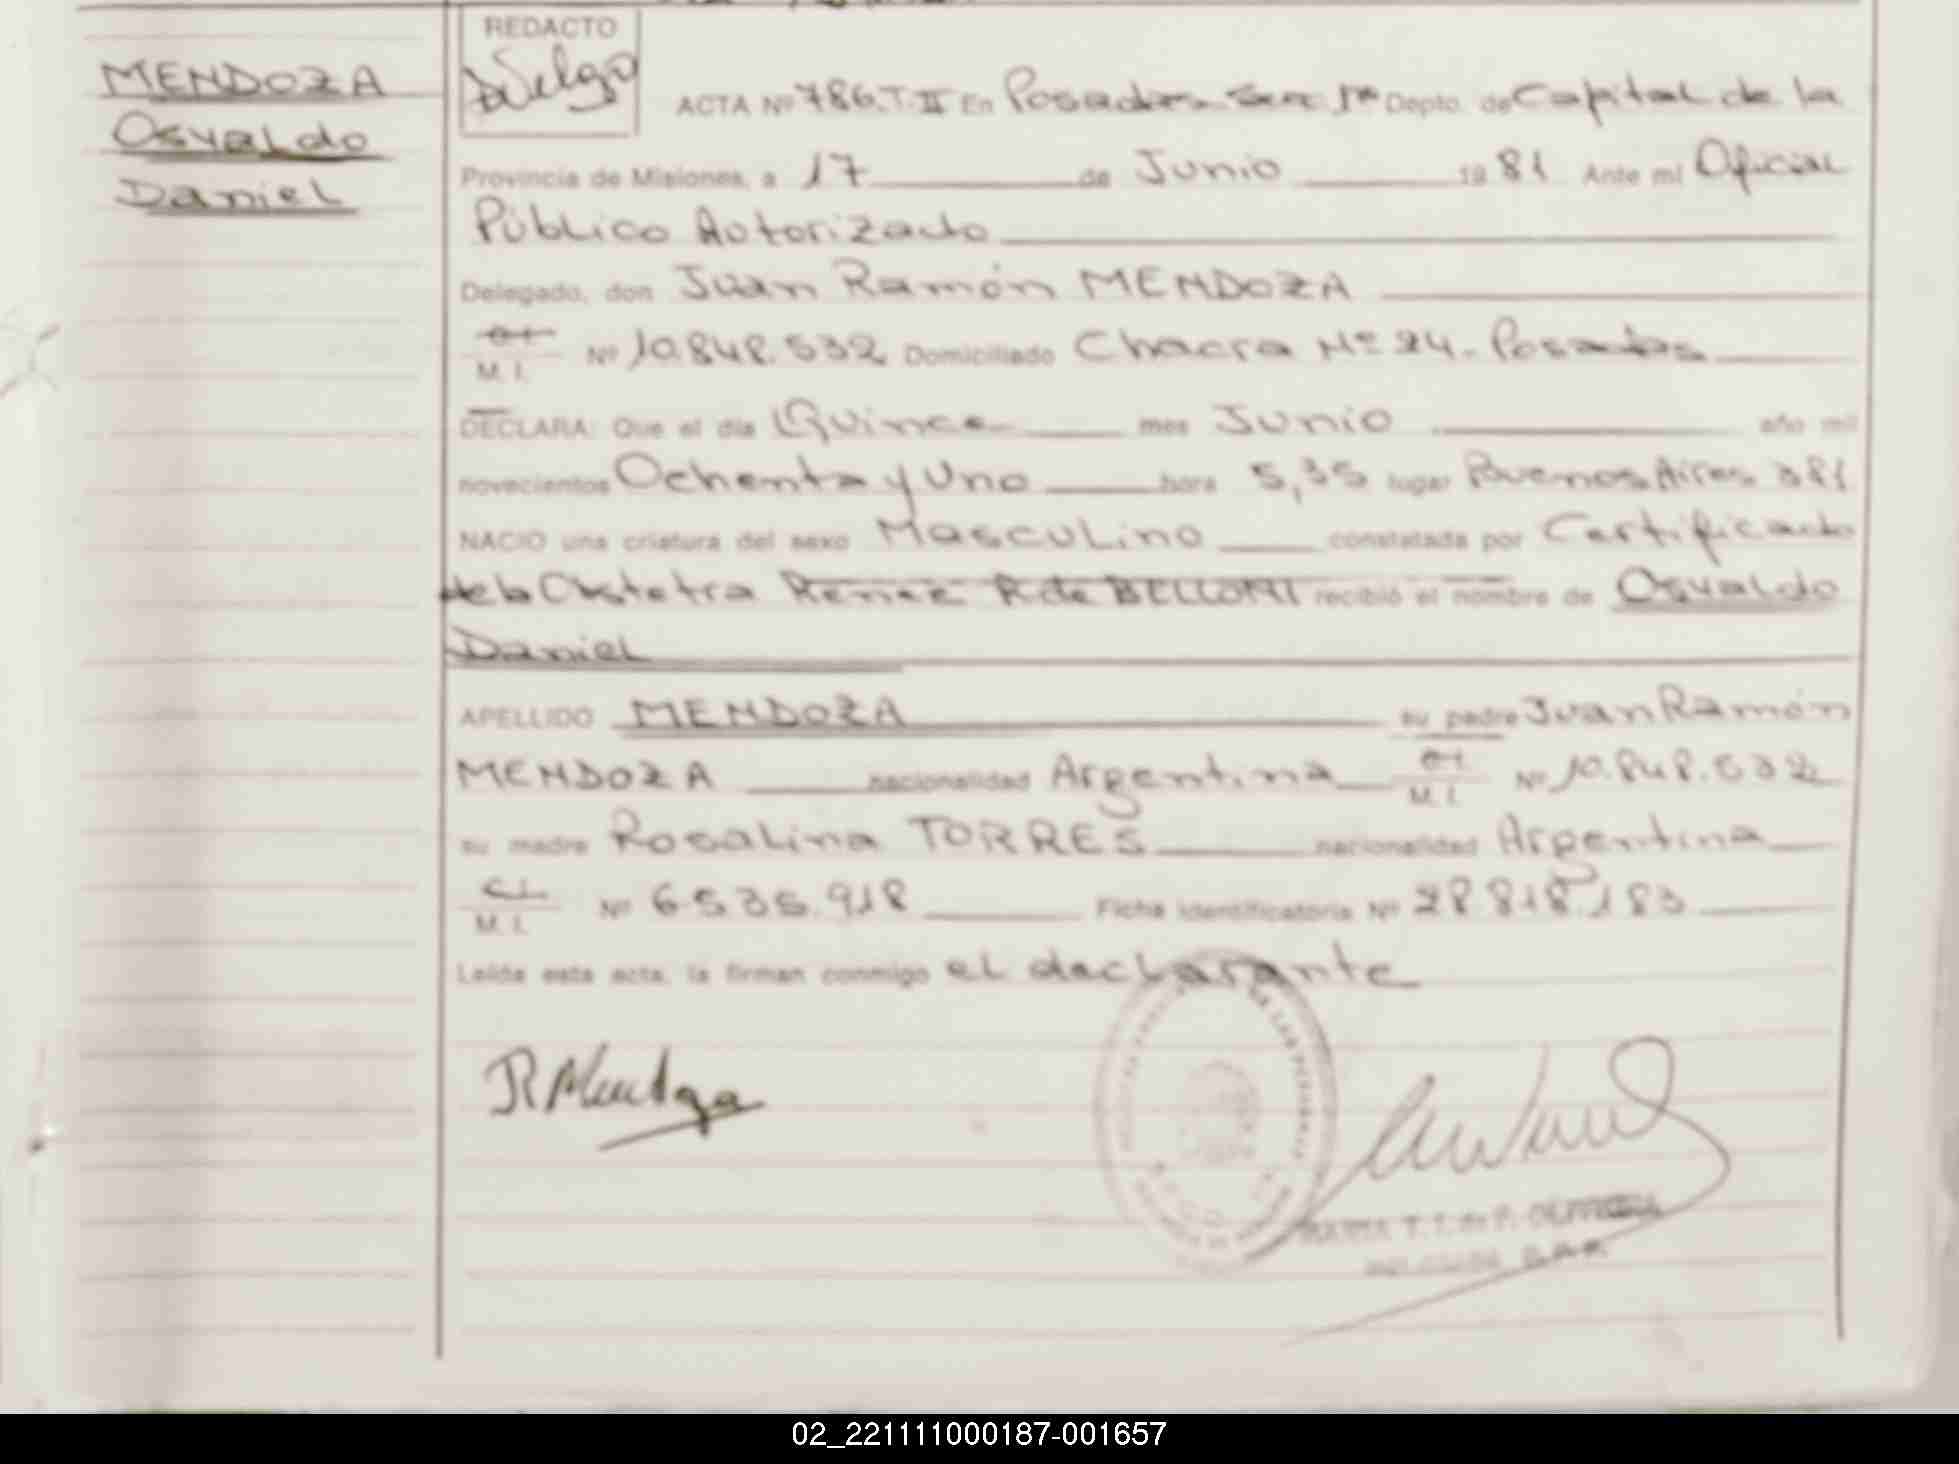 MENDOZA
Osvaldo
Daniel
REDACTO
ACTA Nº 786.T.II En Posadas Secc. 1ª Depto. de Capital de la
Provincia de Misiones, a 17 de Junio 1981 Ante mí Oficial
Público Autorizado
Delegado, don Juan Ramón MENDOZA
M. I. Nº 10.848.532 Domiciliado Chacra Nº 24. Posadas
DECLARA: Que el día Quince mes Junio año mil
novecientos Ochenta y Uno hora 5,35 lugar Buenos Aires 381
NACIO una criatura del sexo Masculino constatada por Certificado
de la Obstetra Reneé R. de BELLONI recibió el nombre de Osvaldo
Daniel
APELLIDO MENDOZA su padre Juan Ramón
MENDOZA nacionalidad Argentina M. I. Nº 10.848.532
su madre Rosalina TORRES nacionalidad Argentina
C.I. M. I. Nº 6.535.918 Ficha Identificatoria Nº 28.818.183
Leída esta acta, la firman conmigo el declarante
MARIA T. I. de P. OLIVEIRA
02_221111000187-001657